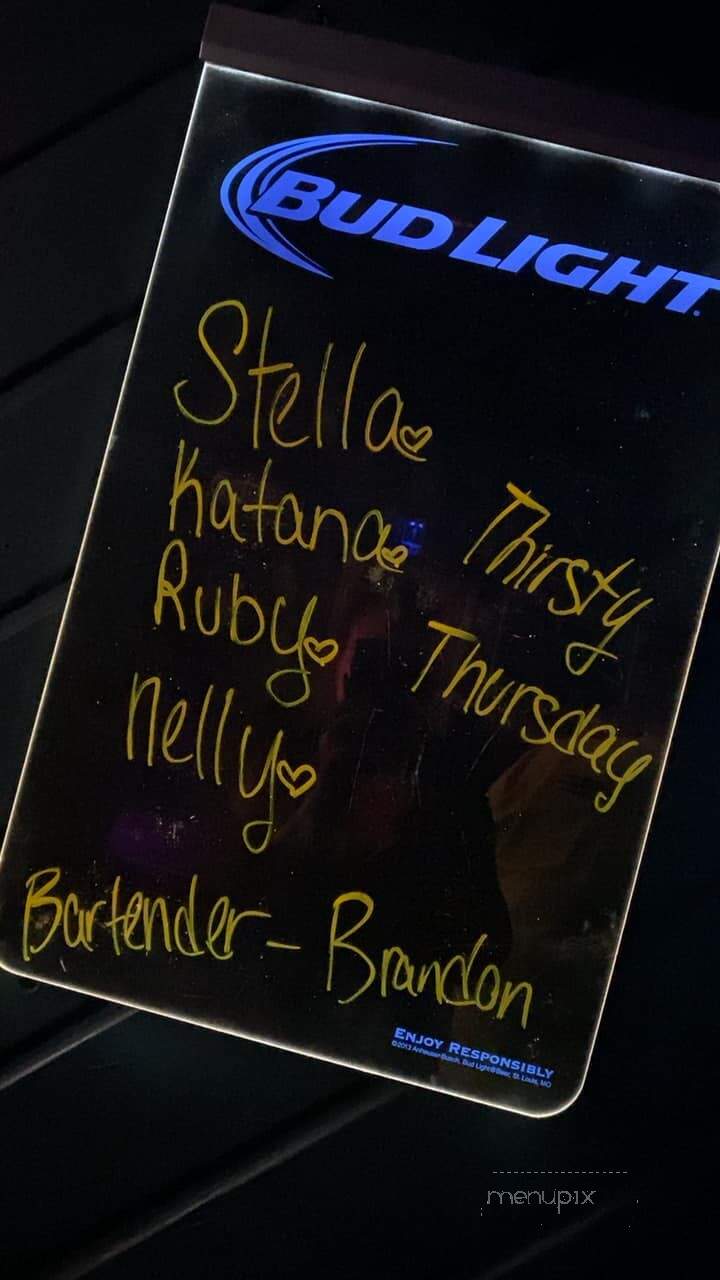 BUD LIGHT
Stella
Katana
Ruby
Nelly
Thirsty
Thursday
Bartender - Brandon
ENJOY RESPONSIBLY
©2013 Anheuser-Busch, Bud Light® Beer, St. Louis, MO
menupix